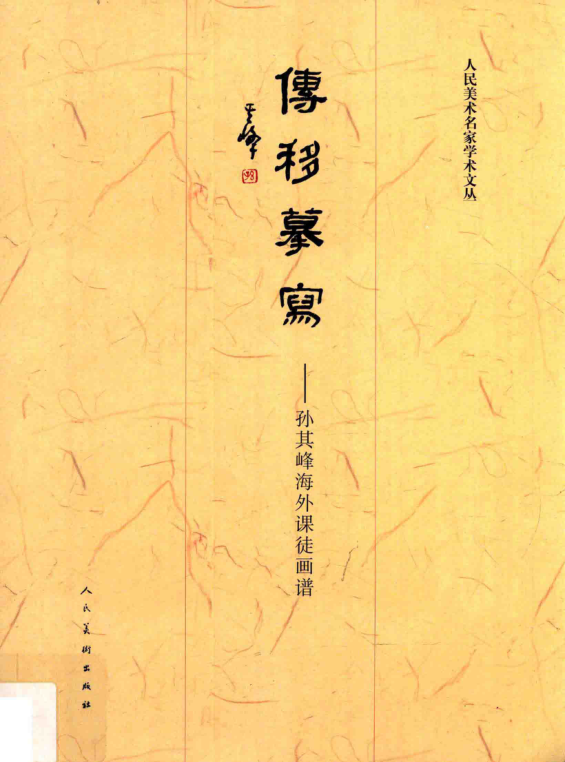 人民美术名家学术文丛
傳移摹寫
其峰
——孙其峰海外课徒画谱
人民美術出版社